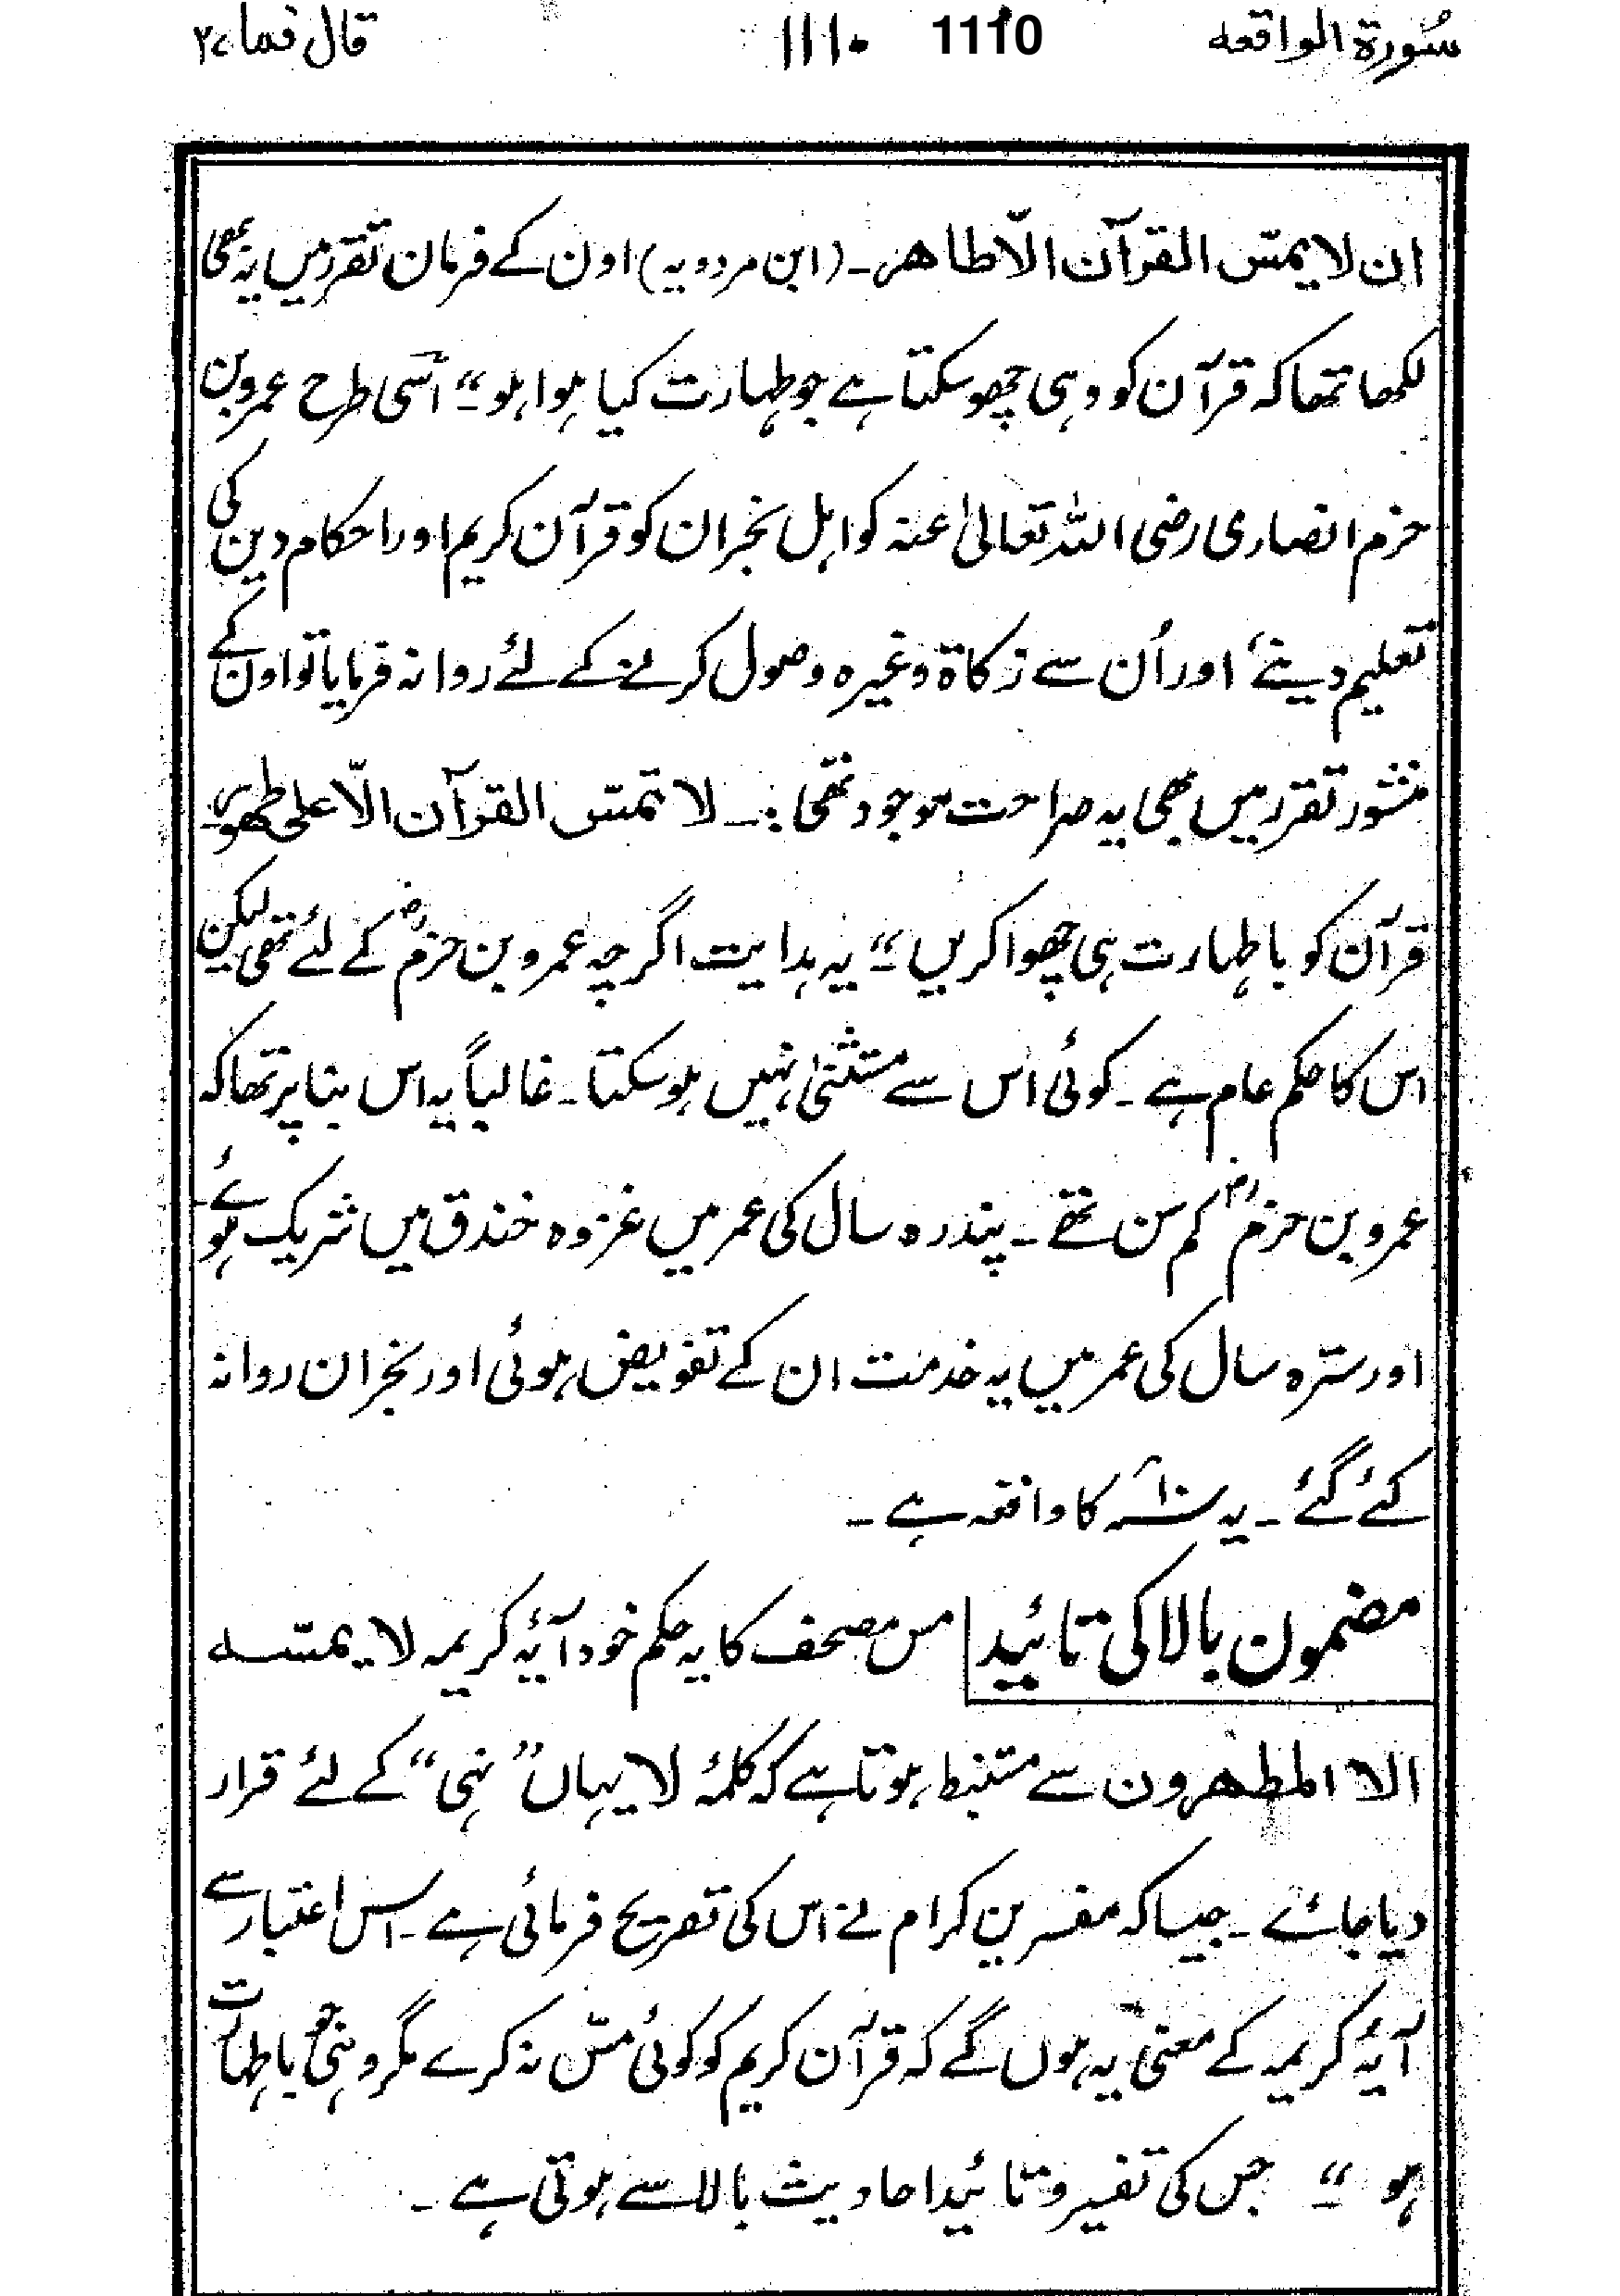 سُورة الواقعه ۱۱۱۰ 1110 قال فما ۲۷
ان لا یمسّ القرآن الّا طاھر۔ (ابن مردویہ) اون کے فرمان تقرر میں یہ بھی
لکھا تھا کہ قرآن کو وہی چھو سکتا ہے جو طہارت کیا ہوا ہو “ اسی طرح عمرو بن
حزم انصاری رضی اللہ تعالیٰ عنہ کو اہل نجران کو قرآن کریم اور احکام دین کی
تعلیم دینے، اور اُن سے زکاۃ وغیرہ وصول کرنے کے لئے روانہ فرمایا تو اون کے
منشور تقرر میں بھی یہ صراحت موجود تھی :۔ لا تمسّ القرآن الّا علی طھور۔
قرآن کو با طہارت ہی چھوا کریں “ یہ ہدایت اگرچہ عمرو بن حزمؓ کے لئے تھی لیکن
اس کا حکم عام ہے۔ کوئی اس سے مستثنیٰ نہیں ہو سکتا۔ غالباً یہ اس بنا پر تھا کہ
عمرو بن حزمؓ کم سن تھے۔ پندرہ سال کی عمر میں غزوہ خندق میں شریک ہوئے
اور سترہ سال کی عمر میں یہ خدمت ان کے تفویض ہوئی اور نجران روانہ
کئے گئے۔ یہ ۱۰ھ کا واقعہ ہے۔
مضمون بالا کی تائید مس مصحف کا یہ حکم خود آیۂ کریمہ لا یمسّہ
الا المطھرون سے مستنبط ہوتا ہے کہ کلمۂ لا یہاں ”نہی“ کے لئے قرار
دیا جائے۔ جیسا کہ مفسرین کرام نے اس کی تصریح فرمائی ہے۔ اس اعتبار سے
آیۂ کریمہ کے معنی یہ ہوں گے کہ قرآن کریم کو کوئی مسّ نہ کرے مگر وہی جو با طہارت
ہو “ جس کی تفسیر و تائید احادیث بالا سے ہوتی ہے۔